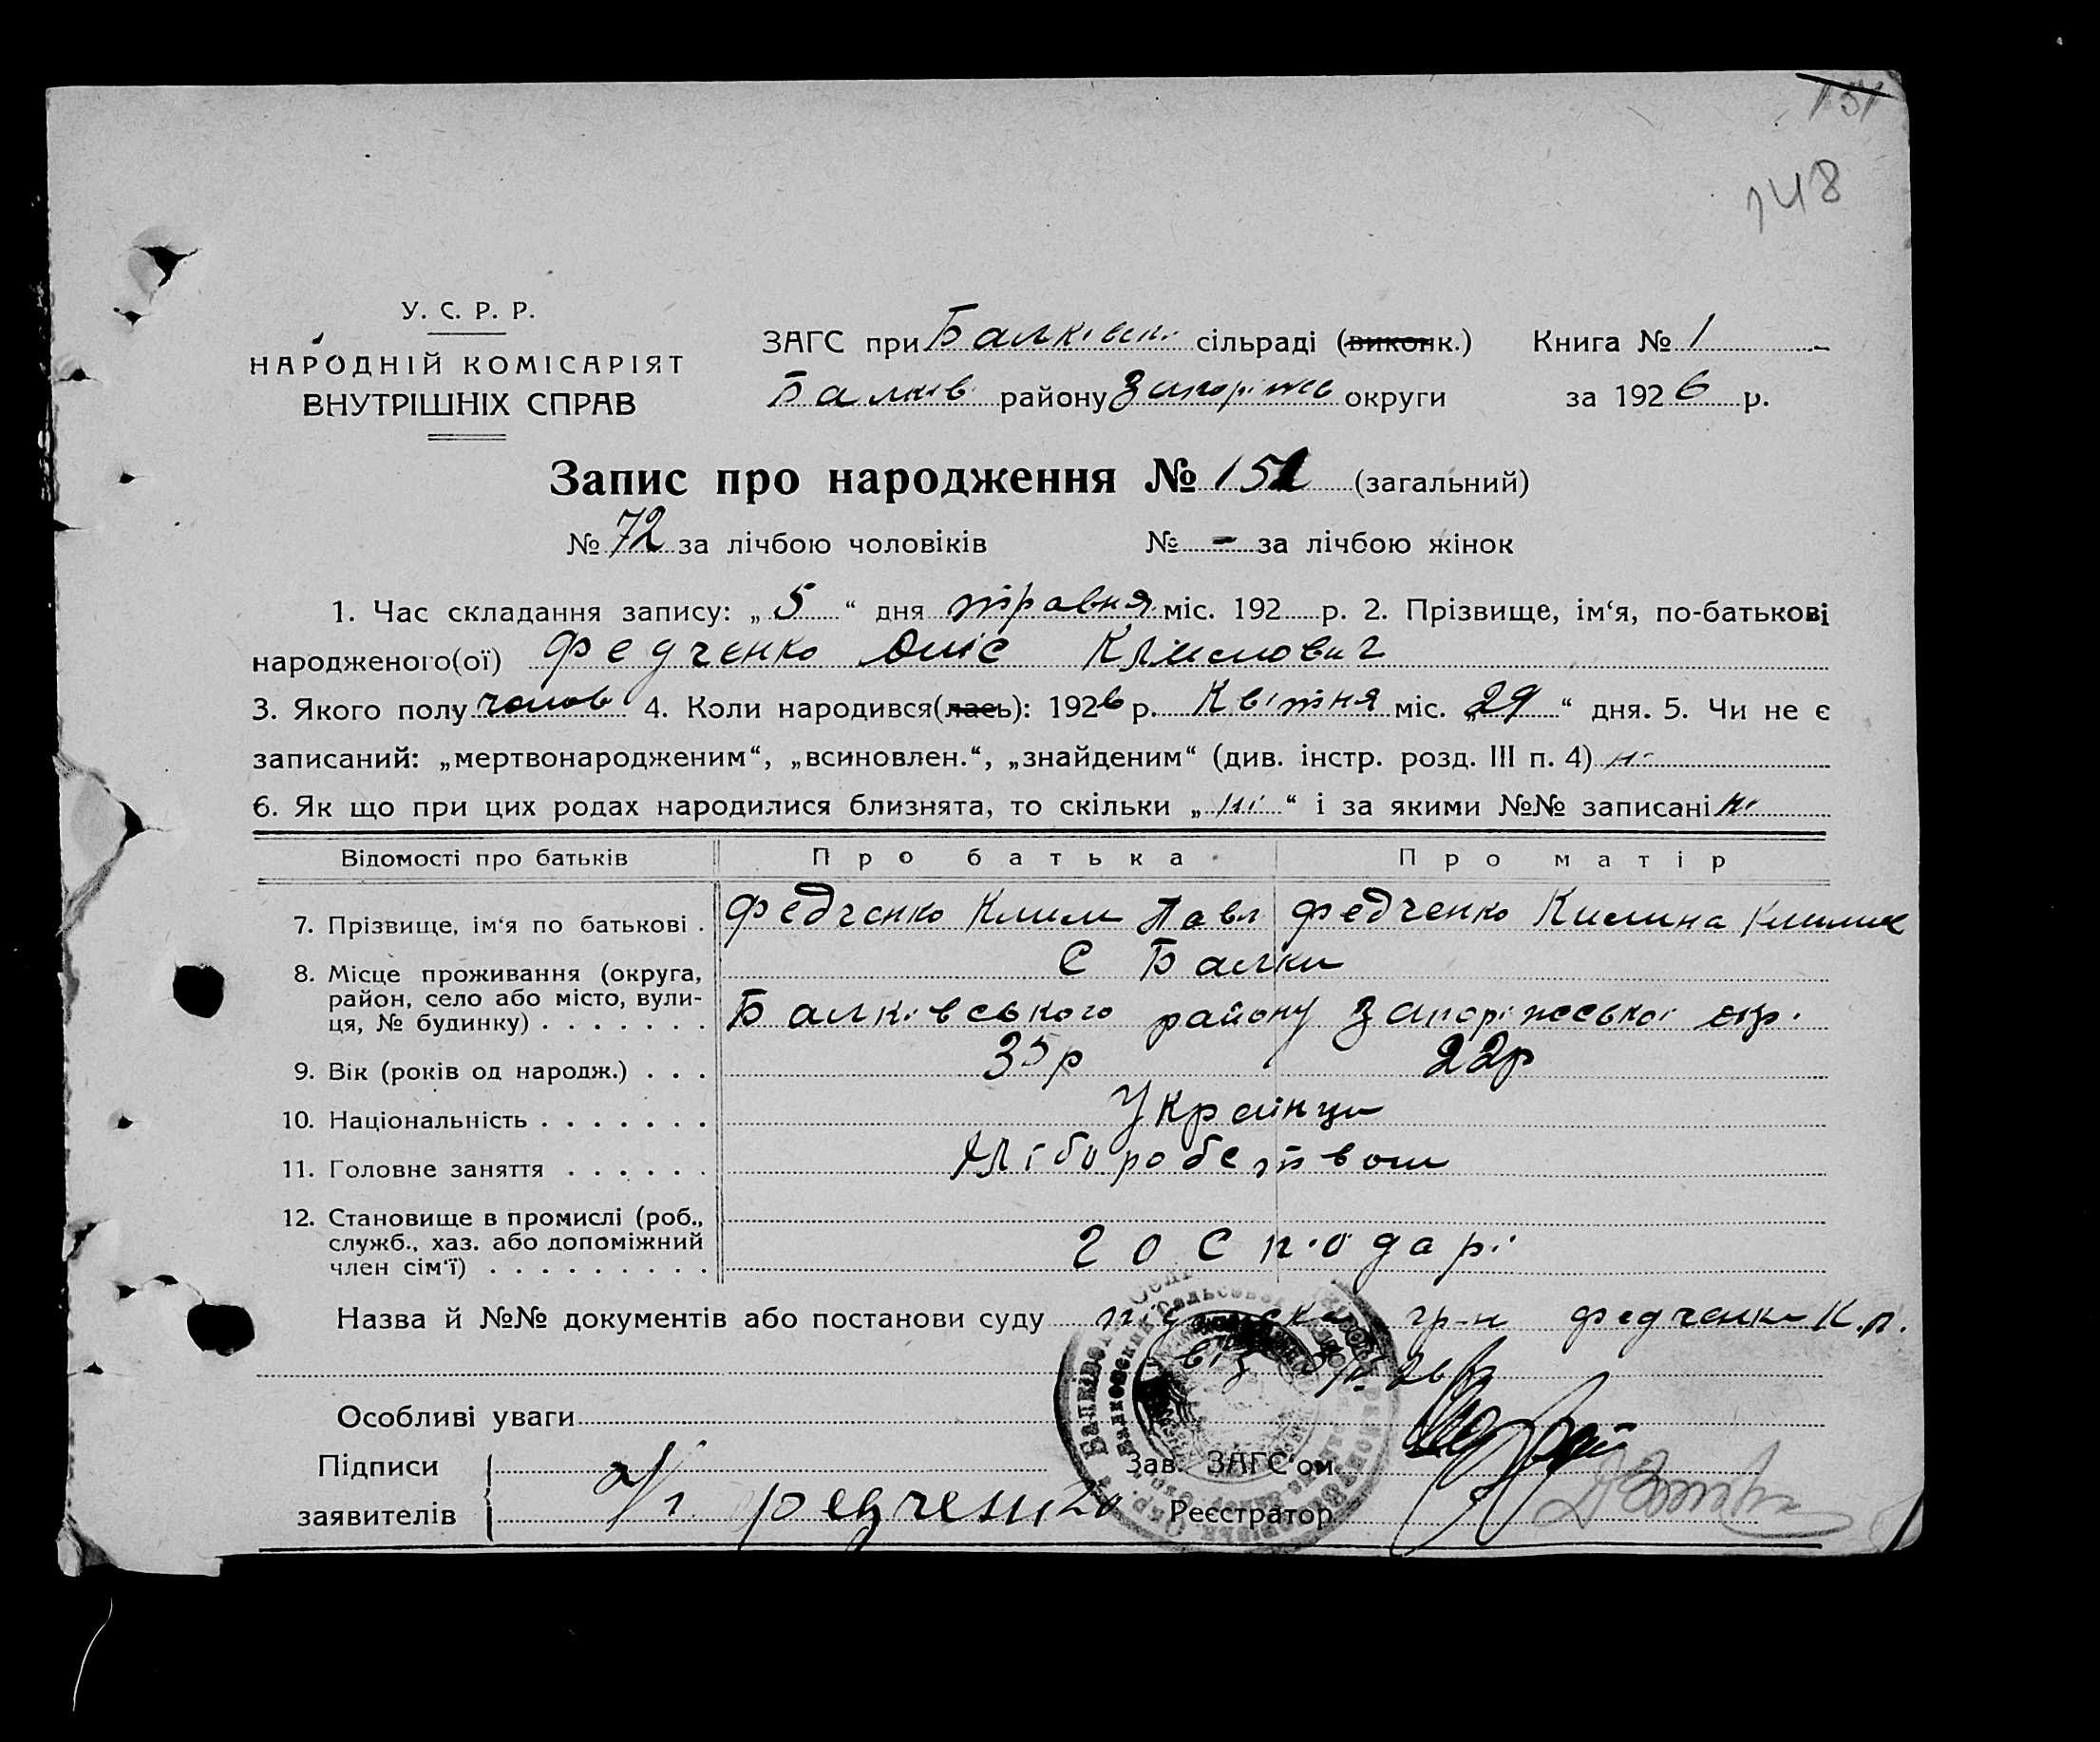 151
148
У. С. Р. Р.
НАРОДНІЙ КОМІСАРІЯТ
ВНУТРІШНІХ СПРАВ
ЗАГС при Балківські сільраді (виконк.) Книга № 1
Балків району Запоріжс округи за 1926 р.
Запис про народження № 151 (загальний)
№ 72 за лічбою чоловіків № - за лічбою жінок
1. Час складання запису: „ 5 “ дня травня міс. 192 р. 2. Прізвище, ім‘я, по-батькові
народженого(ої) Федченко Климович
3. Якого полу чолов 4. Коли народився(лась): 1926 р. Квітня міс. „29“ дня. 5. Чи не є
записаний: „мертвонародженим“, „всиновлен.“, „знайденим“ (див. інстр. розд. III п. 4) ні
6. Як що при цих родах народилися близнята, то скільки „ ні “ і за якими №№ записані ні
Відомості про батьків Про батька Про матір
7. Прізвище, ім‘я по батькові . Федченко Клим Павл Федченко Килина
8. Місце проживання (округа, С Балки
район, село або місто, вули-
ця, № будинку) . . . . . . . Балківського району Запоріжської окр.
9. Вік (років од народж.) . . . 35р 22р
10. Національність . . . . . . . Українци
11. Головне заняття . . . . . . Хліборобством
12. Становище в промислі (роб.,
служб., хаз. або допоміжний господарі
член сім‘ї) . . . . . . . . .
Назва й №№ документів або постанови суду гр-н Федченко К.П.
від 5/V 26р
Особливі уваги
Підписи Зав. ЗАГС‘ом
заявителів Федченко Реєстратор